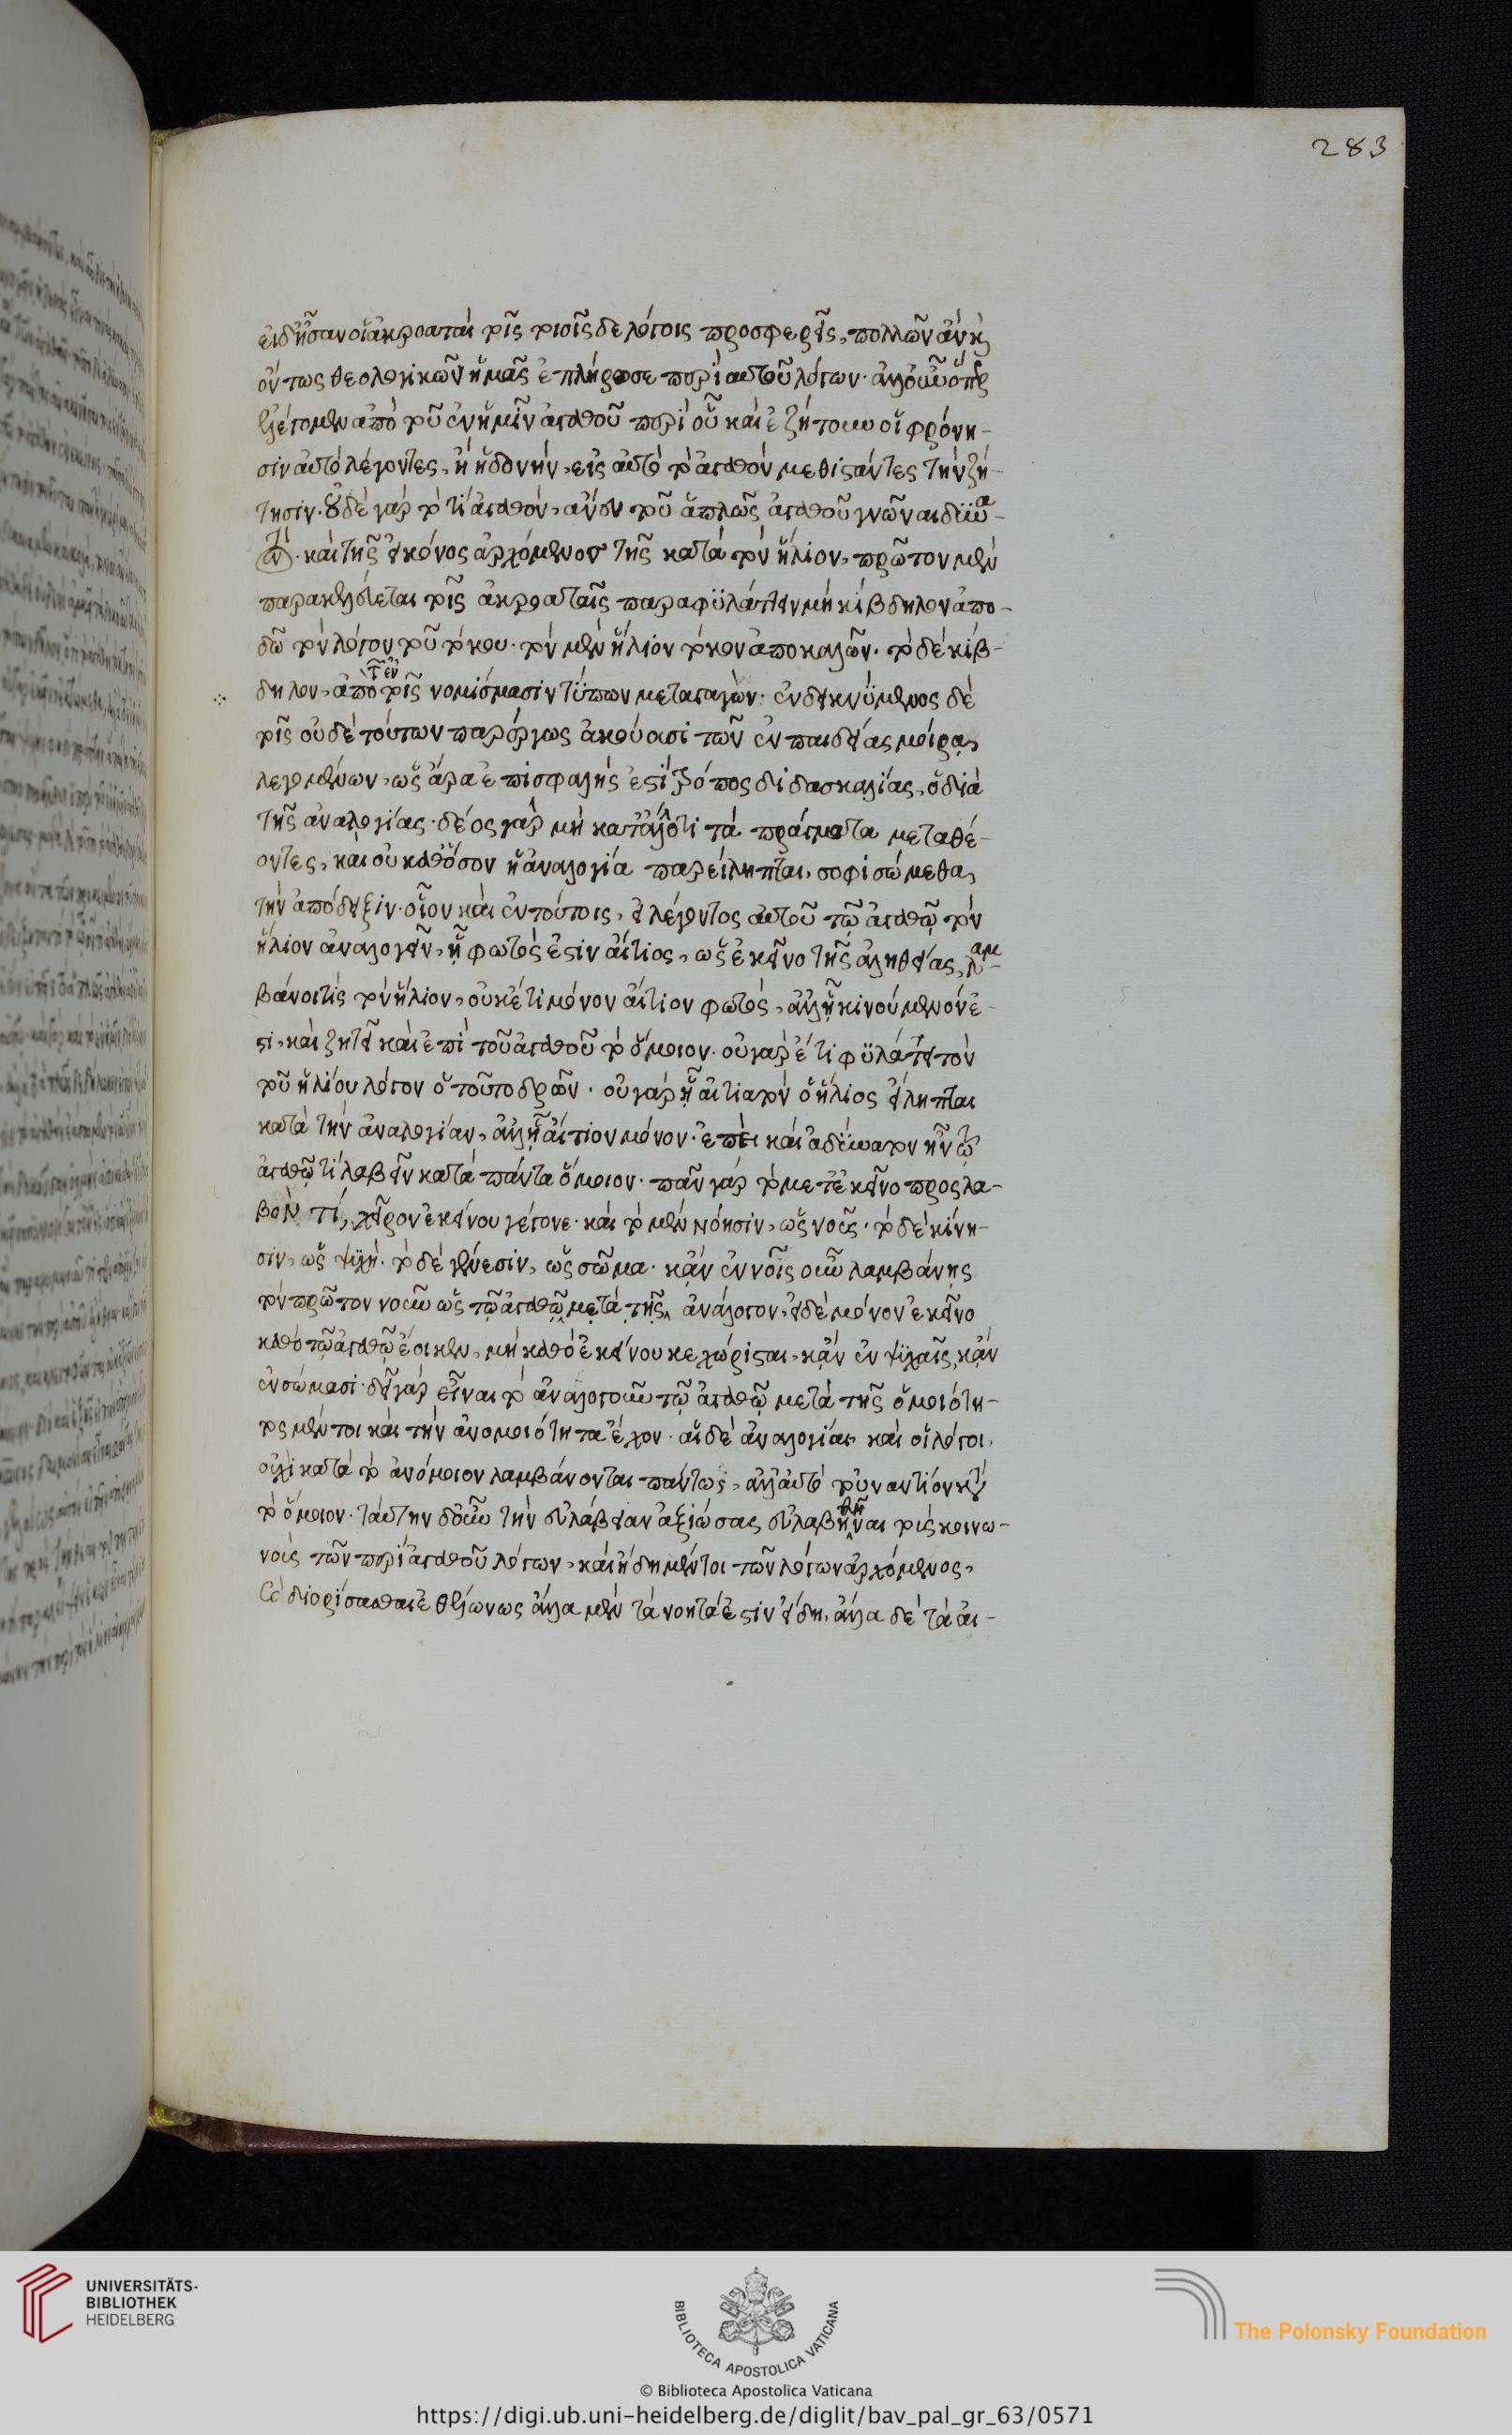 283
εἰδῆσαν οἱ ἀκροαταὶ τοῖς τοιοῖς δε λόγοις προσφερεῖς, πολλῶν ἂν καὶ
ὄντως θεολογικῶν ἡμᾶς ἐπλήρωσε περὶ αὐτοῦ λόγων. ἀλλ' οὖν ὅπερ
ἐλέγομεν ἀπὸ τοῦ ἐν ἡμῖν ἀγαθοῦ περὶ οὗ καὶ ἐζήτουν οἱ φρόνη-
σιν αὐτὸ λέγοντες, ἢ ἡδονήν, εἰς αὐτὸ τὸ ἀγαθὸν μεθιστάντες τὴν ζή-
τησιν. οὐδὲ γὰρ τὸ τὶ ἀγαθόν, ἄνευ τοῦ ἁπλῶς ἀγαθοῦ γνῶναι δυνα-
τόν. καὶ τῆς εἰκόνος ἀρχόμενος τῆς κατὰ τὸν ἥλιον, πρῶτον μὲν
παρακελεύεται τοῖς ἀκροαταῖς παραφυλάττειν μὴ κίβδηλον ἀπο-
δῶ τὸν λόγον τοῦ τόκου. τὸν μὲν ἥλιον τόκον ἀποκαλῶν. τὸ δὲ κίβ-
δηλον, ἀπὸ τῶν ἐν τοῖς νομίσμασιν τύπων μεταγαγών. ἐνδεικνύμενος δὲ
τοῖς οὐδὲ τούτων παρέργως ἀκούουσι τῶν ἐν παιδείας μοίρᾳ
λεγομένων, ὡς ἄρα ἐπισφαλής ἐστι τρόπος διδασκαλίας, ὁ διὰ
τῆς ἀναλογίας. δέος γὰρ μὴ κατ' ἄλλο τι τὰ πράγματα μεταθέ-
οντες, καὶ οὐ καθ' ὅσον ἡ ἀναλογία παρείληπται, σοφισώμεθα
τὴν ἀπόδειξιν. οἷον καὶ ἐν τούτοις, εἰ λέγοντος αὐτοῦ τῷ ἀγαθῷ τὸν
ἥλιον ἀναλογεῖν, ᾗ φωτός ἐστιν αἴτιος, ὡς ἐκεῖνο τῆς ἀληθείας, λαμ-
βάνοι τις τὸν ἥλιον, οὐκέτι μόνον αἴτιον φωτός, ἀλλ' ᾗ κινούμενόν ἐ-
στι, καὶ ζητεῖ καὶ ἐπὶ τοῦ ἀγαθοῦ τὸ ὅμοιον. οὐ γὰρ ἔτι φυλάττει τὸν
τοῦ ἡλίου λόγον ὁ τοῦτο δρῶν. οὐ γὰρ ᾗ αἰτιατὸν ὁ ἥλιος εἴληπται
κατὰ τὴν ἀναλογίαν, ἀλλ' ᾗ αἴτιον μόνον. ἐπεὶ καὶ ἀδύνατον ἦν τῷ
ἀγαθῷ τι λαβεῖν κατὰ πάντα ὅμοιον. πᾶν γὰρ τὸ μετ' ἐκεῖνο προσλα-
βόν τι, χεῖρον ἐκείνου γέγονε. καὶ τὸ μὲν νόησιν, ὡς νοῦς. τὸ δὲ κίνη-
σιν, ὡς ψυχή. τὸ δὲ γένεσιν, ὡς σῶμα. κἂν ἐν νοῖς οὖν λαμβάνῃς
τὸν πρῶτον νοῦν ὡς τῷ ἀγαθῷ μετὰ τῆς ἀνάλογον, εἰ δὲ μόνον ἐκεῖνο
καθὸ τῷ ἀγαθῷ ἔοικεν, μὴ καθὸ ἐκείνου κεχώρισται, κἂν ἐν ψυχαῖς κἂν
ἐν σώμασι. δεῖ γὰρ εἶναι τὸ ἀνάλογον οὖν τῷ ἀγαθῷ μετὰ τῆς ὁμοιότη-
τος μέντοι καὶ τὴν ἀνομοιότητα ἔχον. αἱ δὲ ἀναλογίαι καὶ οἱ λόγοι,
οὐχὶ κατὰ τὸ ἀνόμοιον λαμβάνονται πάντως, ἀλλ' αὐτὸ τοὐναντίον κατὰ
τὸ ὅμοιον. ταύτην δ' οὖν τὴν εὐλάβειαν ἀξιώσας εὐλαβηθῆναι τοὺς κοινω-
νοὺς τῶν περὶ ἀγαθοῦ λόγων, καὶ ἤδη μέντοι τῶν λόγων ἀρχόμενος,
διορίσασθαι ἐθέλων ὡς ἄλλα μὲν τὰ νοητά ἐστιν εἴδη, ἄλλα δὲ τὰ αι-
UNIVERSITÄTS-
BIBLIOTHEK
HEIDELBERG
BIBLIOTECA APOSTOLICA VATICANA
The Polonsky Foundation
© Biblioteca Apostolica Vaticana
https://digi.ub.uni-heidelberg.de/diglit/bav_pal_gr_63/0571